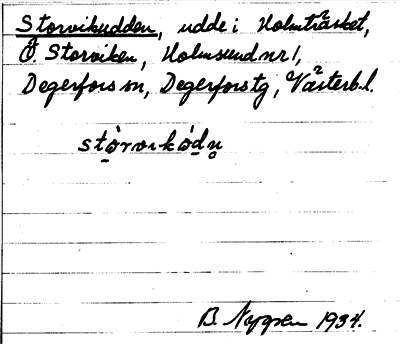 Storvikudden, udde i Holmträsket,
Ö. Storviken, Holmsund nr 1,
Degerfors sn, Degerfors tg, Västerb.l.
stòrvikòdn̥
B. Nygren 1934.